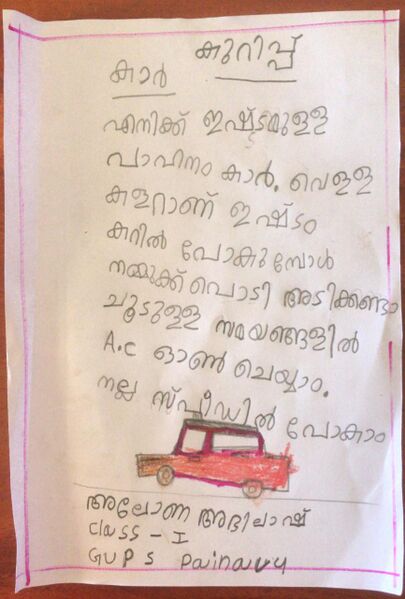 കുറിപ്പ്
കാർ
എനിക്ക് ഇഷ്ടമുള്ള
വാഹനം കാർ. വെള്ള
കളറാണ് ഇഷ്ടം
കാറിൽ പോകുമ്പോൾ
നമുക്ക് പൊടി അടിക്കണ്ടാ
ചൂടുള്ള സമയങ്ങളിൽ
A.c ഓൺ ചെയ്യാം.
നല്ല സ്പീഡിൽ പോകാം
അലോണ അഭിലാഷ്
Class - I
GUPS Painavu